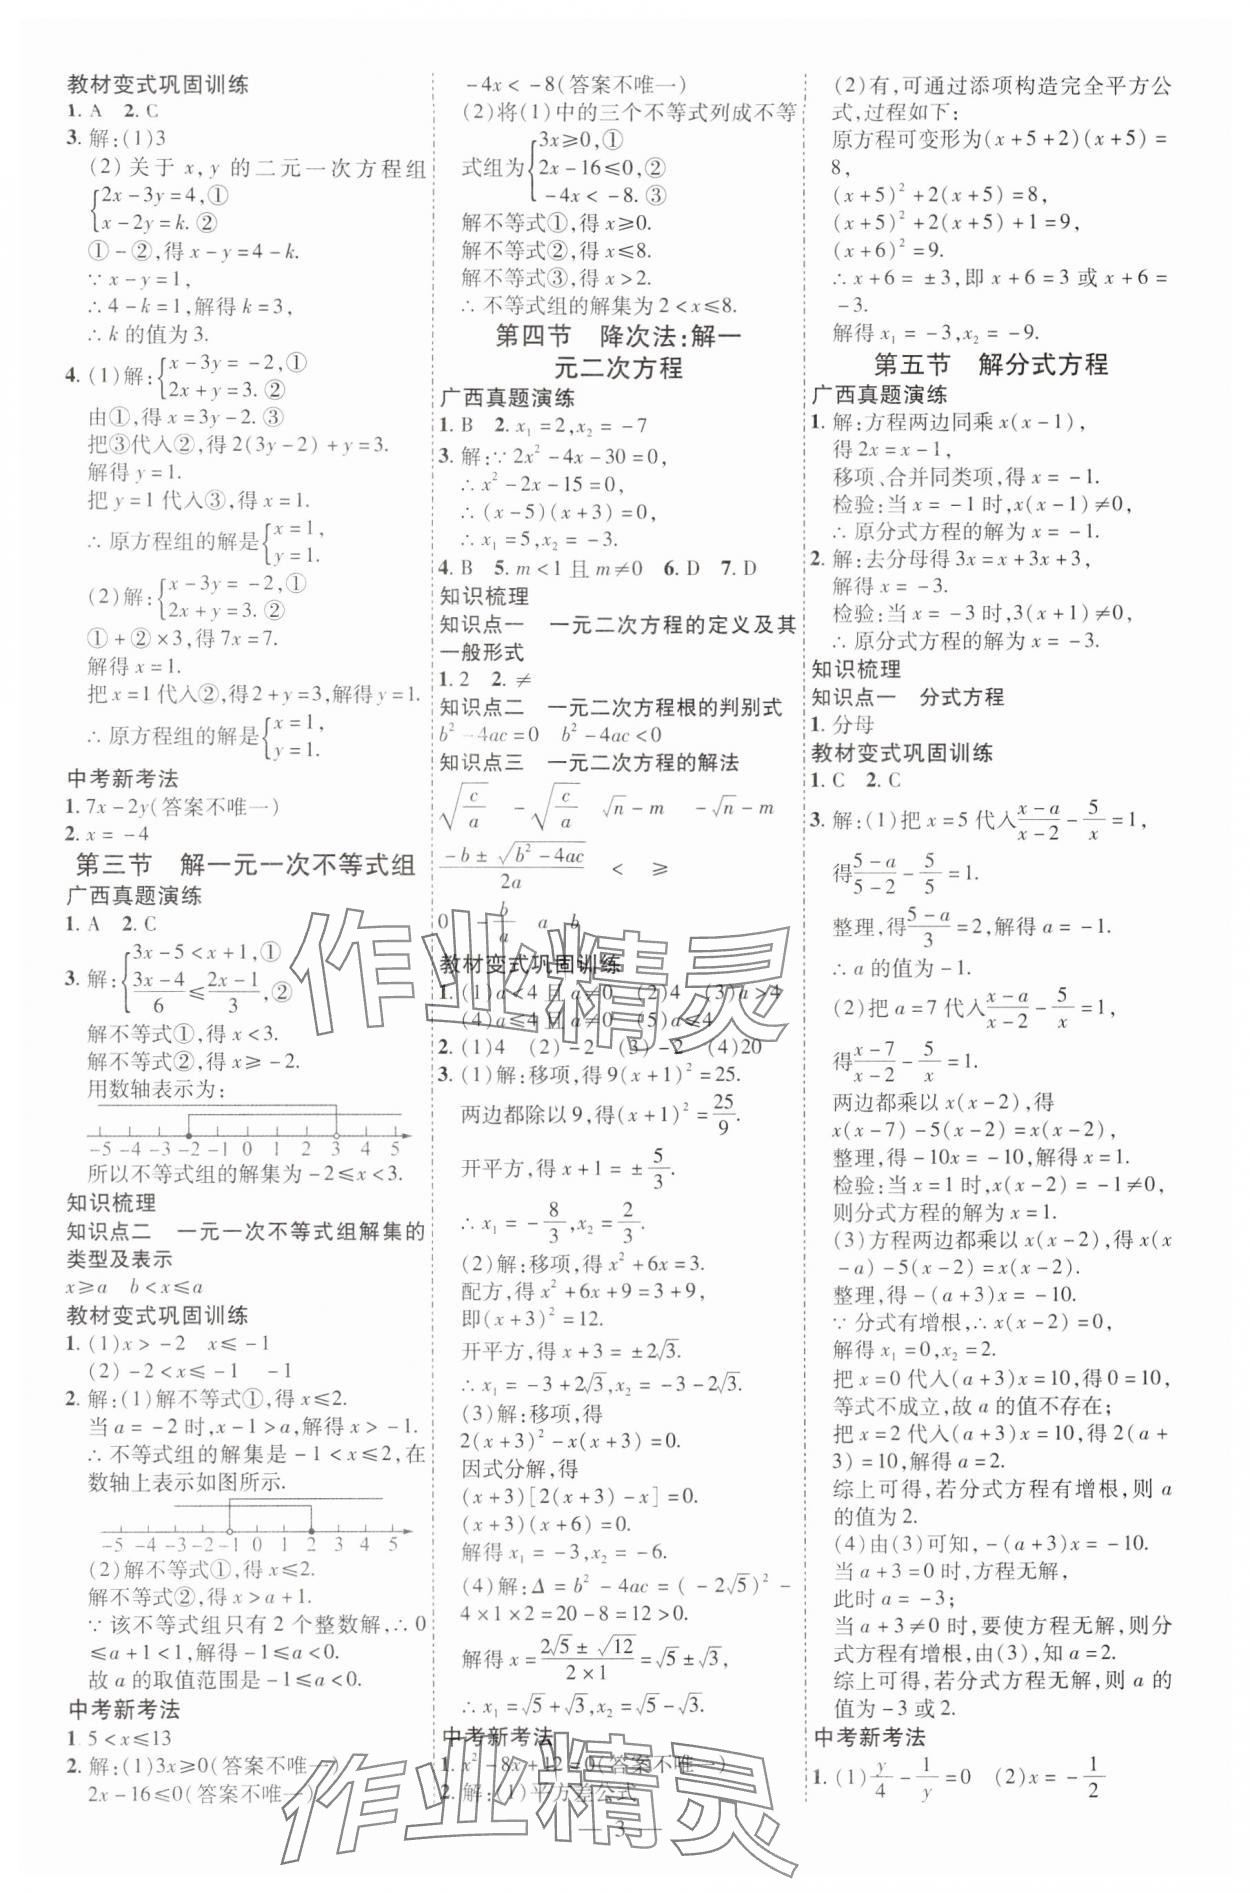 教材变式巩固训练
1. A  2. C
3. 解:(1)3
(2)关于 x,y 的二元一次方程组
{2x-3y=4,①
x-2y=k.②
①-②,得 x-y=4-k.
∵x-y=1,
∴4-k=1,解得 k=3,
∴k 的值为 3.
4. (1)解:{x-3y=-2,①
2x+y=3.②
由①,得 x=3y-2.③
把③代入②,得 2(3y-2)+y=3.
解得 y=1.
把 y=1 代入③,得 x=1.
∴原方程组的解是{x=1,
y=1.
(2)解:{x-3y=-2,①
2x+y=3.②
①+②×3,得 7x=7.
解得 x=1.
把 x=1 代入②,得 2+y=3,解得 y=1.
∴原方程组的解是{x=1,
y=1.
中考新考法
1. 7x-2y(答案不唯一)
2. x=-4
第三节 解一元一次不等式组
广西真题演练
1. A  2. C
3. 解:{3x-5<x+1,①
(3x-4)/6≤(2x-1)/3,②
解不等式①,得 x<3.
解不等式②,得 x≥-2.
用数轴表示为:
-5 -4 -3 -2 -1 0 1 2 3 4 5
所以不等式组的解集为-2≤x<3.
知识梳理
知识点二 一元一次不等式组解集的
类型及表示
x≥a  b<x≤a
教材变式巩固训练
1. (1)x>-2  x≤-1
(2)-2<x≤-1  -1
2. 解:(1)解不等式①,得 x≤2.
当 a=-2 时,x-1>a,解得 x>-1.
∴不等式组的解集是-1<x≤2,在
数轴上表示如图所示.
-5 -4 -3 -2 -1 0 1 2 3 4 5
(2)解不等式①,得 x≤2.
解不等式②,得 x>a+1.
∵该不等式组只有 2 个整数解,∴0
≤a+1<1,解得-1≤a<0.
故 a 的取值范围是-1≤a<0.
中考新考法
1. 5<x≤13
2. 解:(1)3x≥0(答案不唯一)
2x-16≤0(答案不唯一)
-4x<-8(答案不唯一)
(2)将(1)中的三个不等式列成不等
式组为{3x≥0,①
2x-16≤0,②
-4x<-8.③
解不等式①,得 x≥0.
解不等式②,得 x≤8.
解不等式③,得 x>2.
∴不等式组的解集为 2<x≤8.
第四节 降次法:解一
元二次方程
广西真题演练
1. B  2. x₁=2,x₂=-7
3. 解:∵2x²-4x-30=0,
∴x²-2x-15=0,
∴(x-5)(x+3)=0,
∴x₁=5,x₂=-3.
4. B  5. m<1 且 m≠0  6. D  7. D
知识梳理
知识点一 一元二次方程的定义及其
一般形式
1. 2  2. ≠
知识点二 一元二次方程根的判别式
b²-4ac=0  b²-4ac<0
知识点三 一元二次方程的解法
√(c/a)  -√(c/a)  √n-m  -√n-m
(-b±√(b²-4ac))/2a  <  ≥
0  -b/a  a  b
教材变式巩固训练
1. (1)a<4 且 a≠0  (2)4  (3)a>4
(4)a≤4 且 a≠0  (5)a≤4
2. (1)4  (2)-2  (3)-2  (4)20
3. (1)解:移项,得 9(x+1)²=25.
两边都除以 9,得(x+1)²=25/9.
开平方,得 x+1=±5/3.
∴x₁=-8/3,x₂=2/3.
(2)解:移项,得 x²+6x=3.
配方,得 x²+6x+9=3+9,
即(x+3)²=12.
开平方,得 x+3=±2√3.
∴x₁=-3+2√3,x₂=-3-2√3.
(3)解:移项,得
2(x+3)²-x(x+3)=0.
因式分解,得
(x+3)[2(x+3)-x]=0.
(x+3)(x+6)=0.
解得 x₁=-3,x₂=-6.
(4)解:Δ=b²-4ac=(-2√5)²-
4×1×2=20-8=12>0.
解得 x=(2√5±√12)/(2×1)=√5±√3,
∴x₁=√5+√3,x₂=√5-√3.
中考新考法
1. x²-8x+12=0(答案不唯一)
2. 解:(1)平方差公式
(2)有,可通过添项构造完全平方公
式,过程如下:
原方程可变形为(x+5+2)(x+5)=
8,
(x+5)²+2(x+5)=8,
(x+5)²+2(x+5)+1=9,
(x+6)²=9.
∴x+6=±3,即 x+6=3 或 x+6=
-3.
解得 x₁=-3,x₂=-9.
第五节 解分式方程
广西真题演练
1. 解:方程两边同乘 x(x-1),
得 2x=x-1,
移项、合并同类项,得 x=-1.
检验:当 x=-1 时,x(x-1)≠0,
∴原分式方程的解为 x=-1.
2. 解:去分母得 3x=x+3x+3,
解得 x=-3.
检验:当 x=-3 时,3(x+1)≠0,
∴原分式方程的解为 x=-3.
知识梳理
知识点一 分式方程
1. 分母
教材变式巩固训练
1. C  2. C
3. 解:(1)把 x=5 代入(x-a)/(x-2)-5/x=1,
得(5-a)/(5-2)-5/5=1.
整理,得(5-a)/3=2,解得 a=-1.
∴a 的值为-1.
(2)把 a=7 代入(x-a)/(x-2)-5/x=1,
得(x-7)/(x-2)-5/x=1.
两边都乘以 x(x-2),得
x(x-7)-5(x-2)=x(x-2),
整理,得-10x=-10,解得 x=1.
检验:当 x=1 时,x(x-2)=-1≠0,
则分式方程的解为 x=1.
(3)方程两边都乘以 x(x-2),得 x(x
-a)-5(x-2)=x(x-2).
整理,得-(a+3)x=-10.
∵分式有增根,∴x(x-2)=0,
解得 x₁=0,x₂=2.
把 x=0 代入(a+3)x=10,得 0=10,
等式不成立,故 a 的值不存在;
把 x=2 代入(a+3)x=10,得 2(a+
3)=10,解得 a=2.
综上可得,若分式方程有增根,则 a
的值为 2.
(4)由(3)可知,-(a+3)x=-10.
当 a+3=0 时,方程无解,
此时 a=-3;
当 a+3≠0 时,要使方程无解,则分
式方程有增根,由(3),知 a=2.
综上可得,若分式方程无解,则 a 的
值为-3 或 2.
中考新考法
1. (1)y/4-1/y=0  (2)x=-1/2
— 3 —
作业精灵
作业精灵